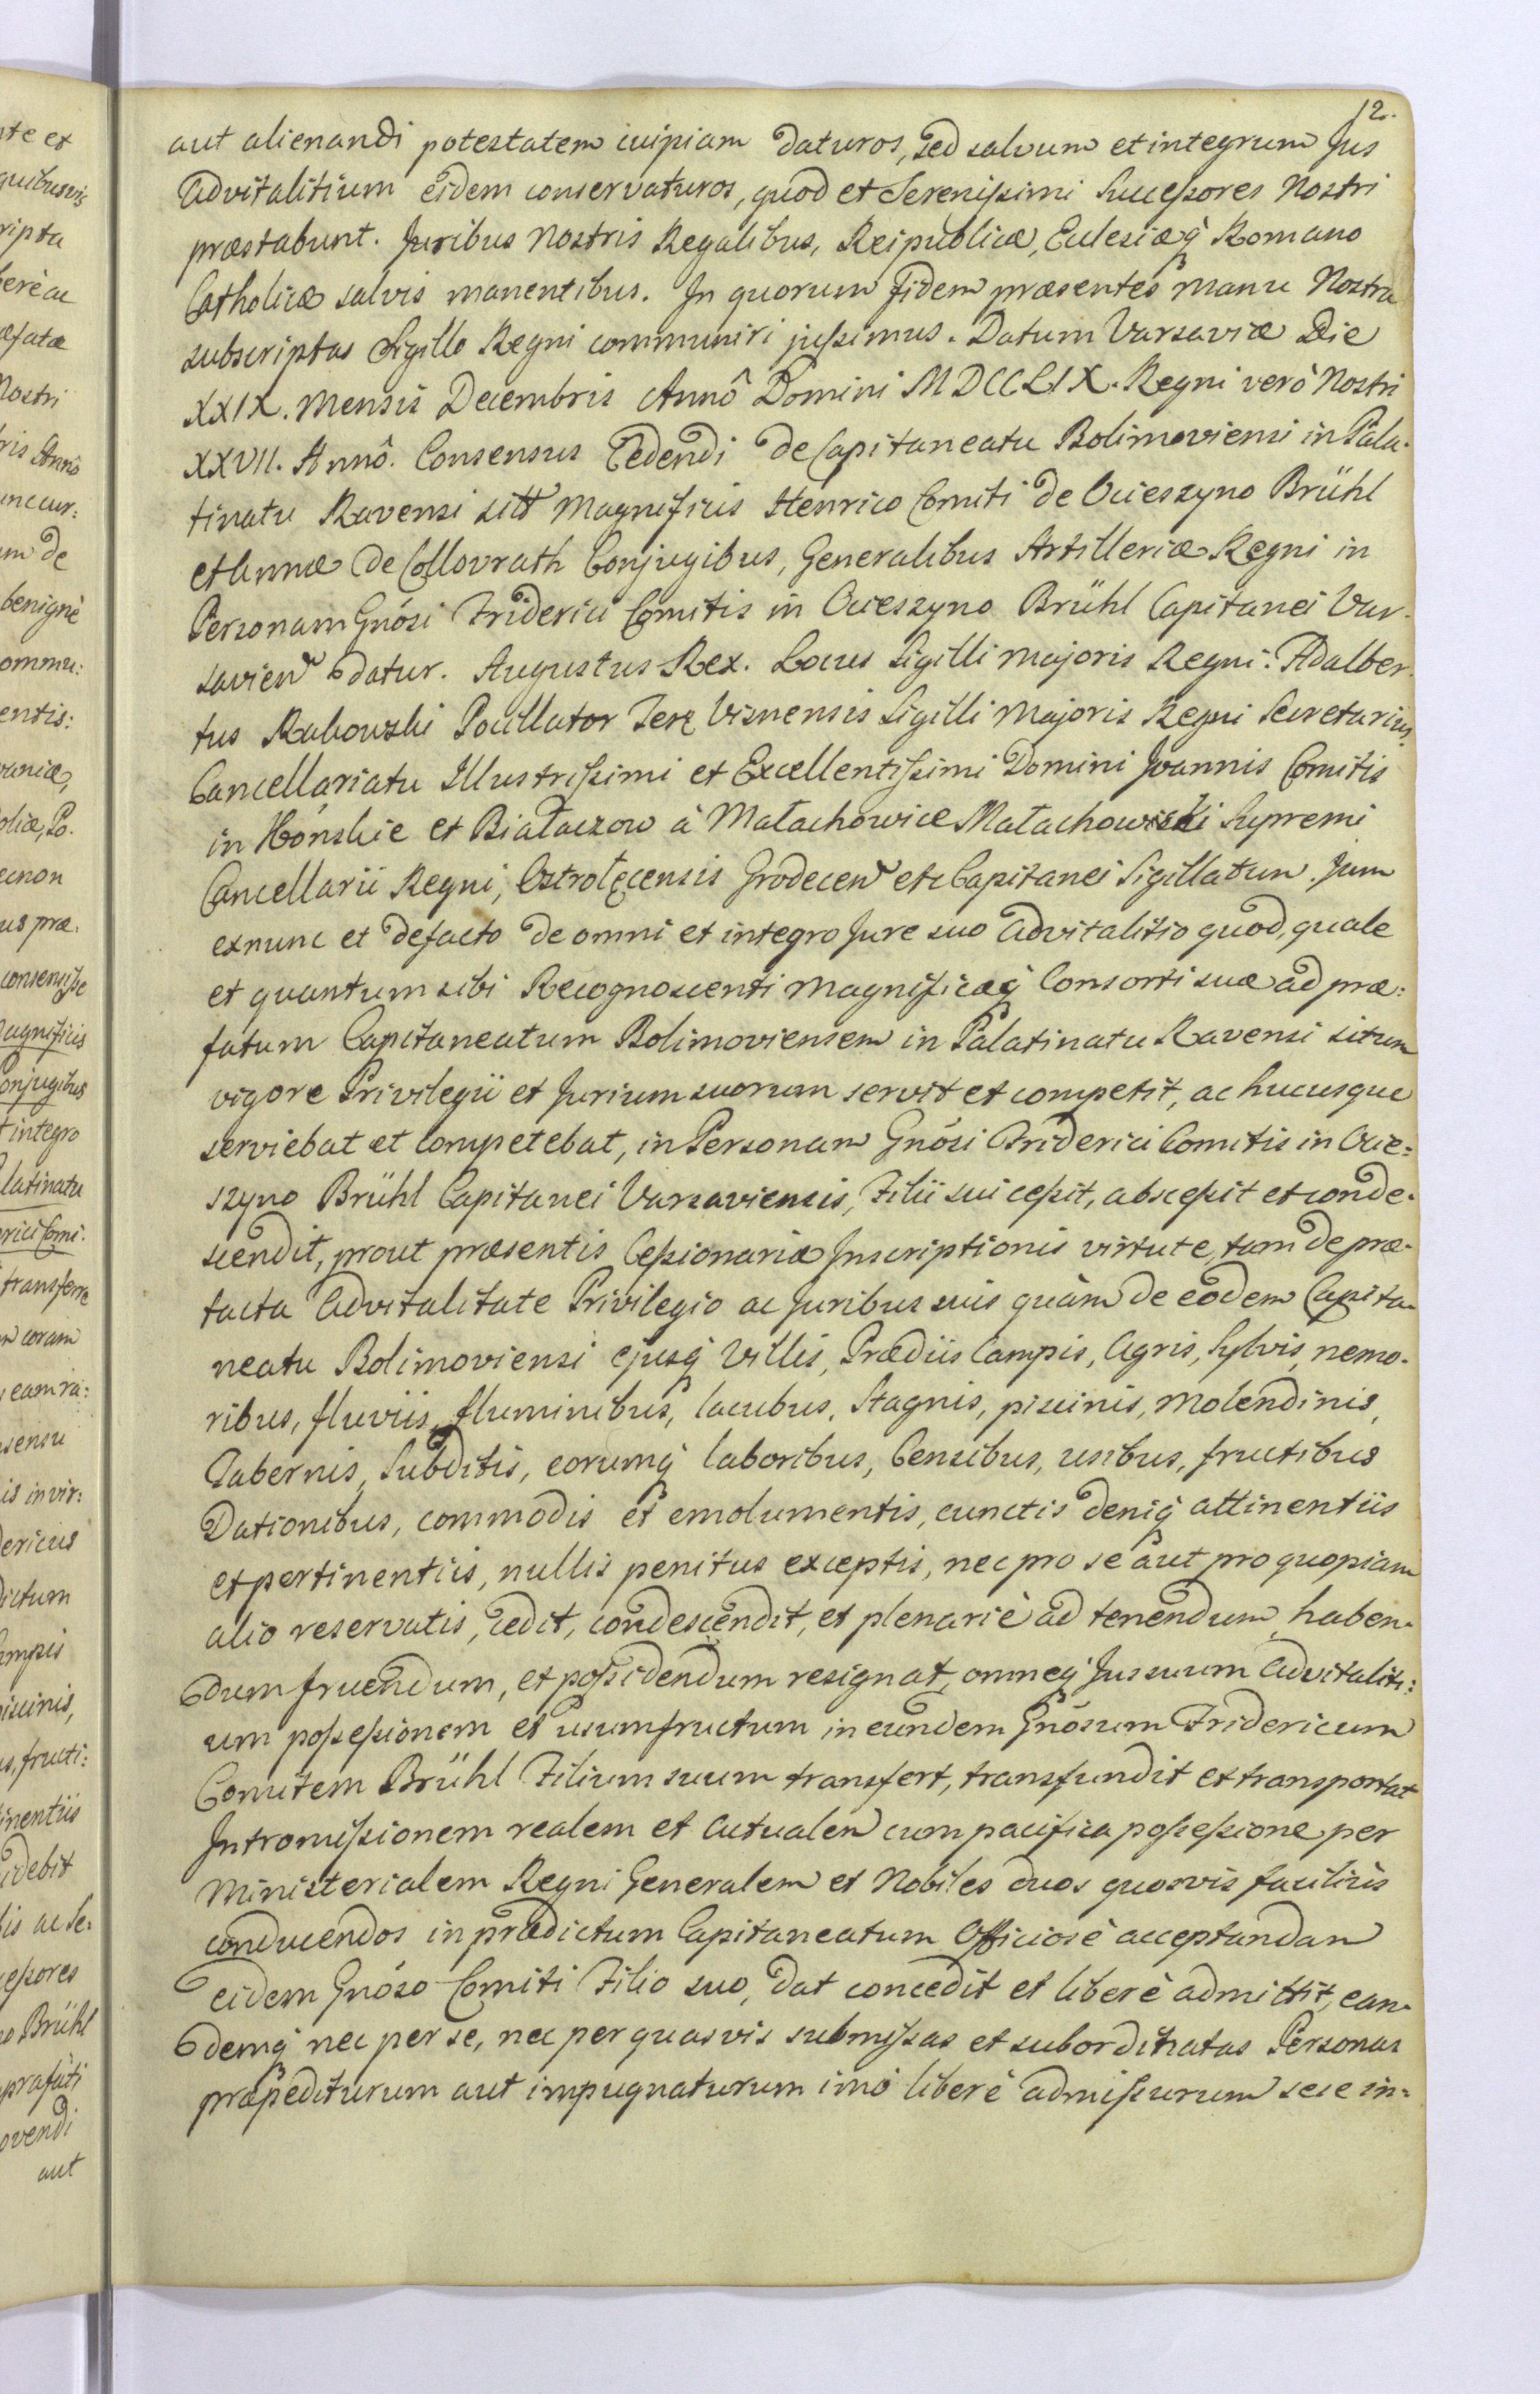 12.
aut alienandi potestatem cuipiam daturos, sed salvum et integrum Jus
Advitalitium eidem conservaturos, quod et Serenissimi Successores Nostri
præstabunt. Juribus Nostris Regalibus, Reipublicæ, Eclesiæq̀ Romano
Catholicæ salvis manentibus. In quorum fidem præsentes manu Nostra
subscriptas Sigillo Regni communiri jussimus. Datum Varsaviæ Die
XXIX. Mensis Decembris Annô Domini MDCCLIX. Regni verò Nostri
XXVII. Annô. Consensus Cedendi de Capitaneatu Bolimoviensi in Pala-
tinatu Ravensi sitt Magnificis Henrico Comiti de Ocieszyno Brühl
et Annæ de Collovrath Conjugibus, Generalibus Artilleriæ Regni in
Personam Gnósi Friderici Comitis in Ocieszyno Brühl Capitanei Var-
savien datur. Augustus Rex. Locus Sigilli Majoris Regni. Adalber-
tus Rakowski Pocillator Terę Visnensis Sigilli Majoris Regni Secretarius.
Cancellariatu Illustrissimi et Excellentissimi Domini Joannis Comitis
in Hońskie et Białaczow à Małachowice Małachowiski Supremi
Cancellarii Regni, Ostrołęcensis Grodecen etc Capitanei Sigillatum. Jam
exnunc et defacto de omni et integro Jure suo Advitalitio quod, quale
et quantum sibi Recognoscenti Magnificæq̀ Consorti suæ ad præ:
fatum Capitaneatum Bolimoviensem in Palatinatu Ravensi situm
vigore Privilegii et Jurium suorum servit et competit, ac hucusque
serviebat et competebat, in Personam Gnósi Friderici Comitis in Ocie:
szyno Brühl Capitanei Varsaviensis, Filii sui cessit, abscessit et conde-
scendit, prout præsentis Cessionariæ Inscriptionis virtute, tam de præ-
tacta Advitalitate Privilegio ac Juribus suis quàm de eodem Capita-
neatu Bolimoviensi ejusq̀ Villis, Prædiis Campis, Agris, Sylvis, nemo-
ribus, fluviis, fluminibus, lacubus, Stagnis, piscinis, Molendinis,
Tabernis, Subditis, eorumq̀ laboribus, Censibus, usibus, fructibus
Dationibus, commodis et emolumentis, cunctis deniq̀ attinentiis
et pertinentiis, nullis penitus exceptis, nec pro se aut pro quopiam
alio reservatis, cedit, condescendit, et plenariè ad tenendum, haben-
dum fruendum, et possidendum resignat, omneq̀ Jus suum Advitaliti:
um possessionem et usumfructum in eundem Gnósum Fridericum
Comitem Brühl Filium suum transfert, transfundit et transportat
Intromissionem realem et Actualem cum pacifica possessione per
Ministerialem Regni Generalem et Nobiles duos quosvis faciliùs
conducendos in prædictum Capitaneatum Officiosè acceptandam
eidem Gnóso Comiti Filio suo, dat concedit et liberè admittit, ean-
demq̀ nec per se, nec per quasvis submissas et subordinatas Personas
præpediturum aut impugnaturum imò liberè admissurum sese in: